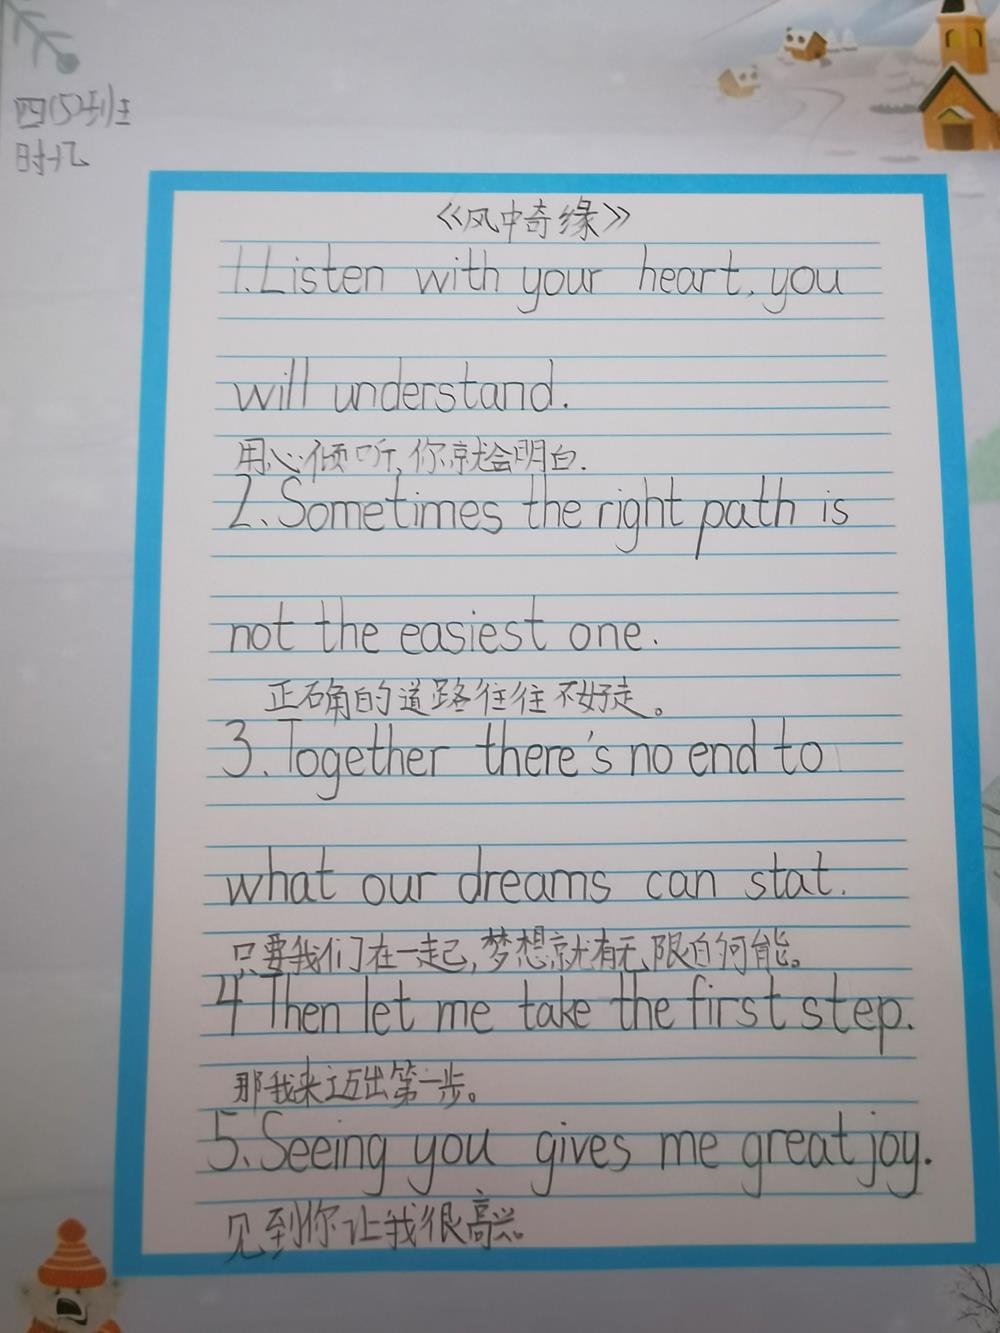 四(5)班
《风中奇缘》
1.Listen with your heart, you
will understand.
用心倾听,你就会明白.
2.Sometimes the right path is
not the easiest one.
正确的道路往往不好走。
3.Together there's no end to
what our dreams can stat.
只要我们在一起,梦想就有无限的可能。
4 Then let me take the first step.
那我来迈出第一步。
5.Seeing you gives me great joy.
见到你让我很高兴。